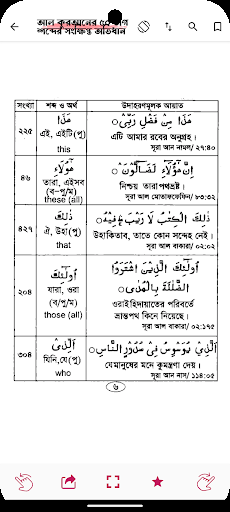 আল কুরআনের ৫০ ভাগ
শব্দের সংক্ষিপ্ত অভিধান
সংখ্যা
শব্দ ও অর্থ
উদাহরণমূলক আয়াত
২২৫
هٰذَا
এই, এইটি(পু)
this
هٰذَا مِنْ فَضْلِ رَبِّىْ
এটি আমার রবের অনুগ্রহ।
সূরা আন নামল/ ২৭:৪০
৪৬
هٰٓؤُلَآءِ
তারা, এইসব
(ব-পু/ম)
these (all)
اِنَّ هٰٓؤُلَآءِ لَضَآلُّوْنَ
নিশ্চয় তারা পথভ্রষ্ট।
সূরা আল মোতাফফেফিন/ ৮৩:৩২
৪২৭
ذٰلِكَ
ঐ, উহা(পু)
that
ذٰلِكَ الْكِتٰبُ لَا رَيْبَ فِيْهِ
উহা কিতাব, তাতে কোন সন্দেহ নেই।
সূরা আল বাকারা/ ০২:০২
২০৪
اُولٰٓئِكَ
যারা, ওরা
(ব/পু/ম)
those (all)
اُولٰٓئِكَ الَّذِيْنَ اشْتَرَوُا
الضَّلٰلَةَ بِالْهُدٰى
ওরাই হিদায়াতের পরিবর্তে
ভ্রান্তপথ কিনে নিয়েছে।
সূরা আল বাকারা/ ০২:১৭৫
৩০৪
اَلَّذِىْ
যিনি,যে(পু)
who
اَلَّذِىْ يُوَسْوِسُ فِىْ صُدُوْرِ النَّاسِ
যে মানুষের মনে কুমন্ত্রণা দেয়।
সূরা আন নাস/ ১১৪:০৫
৬